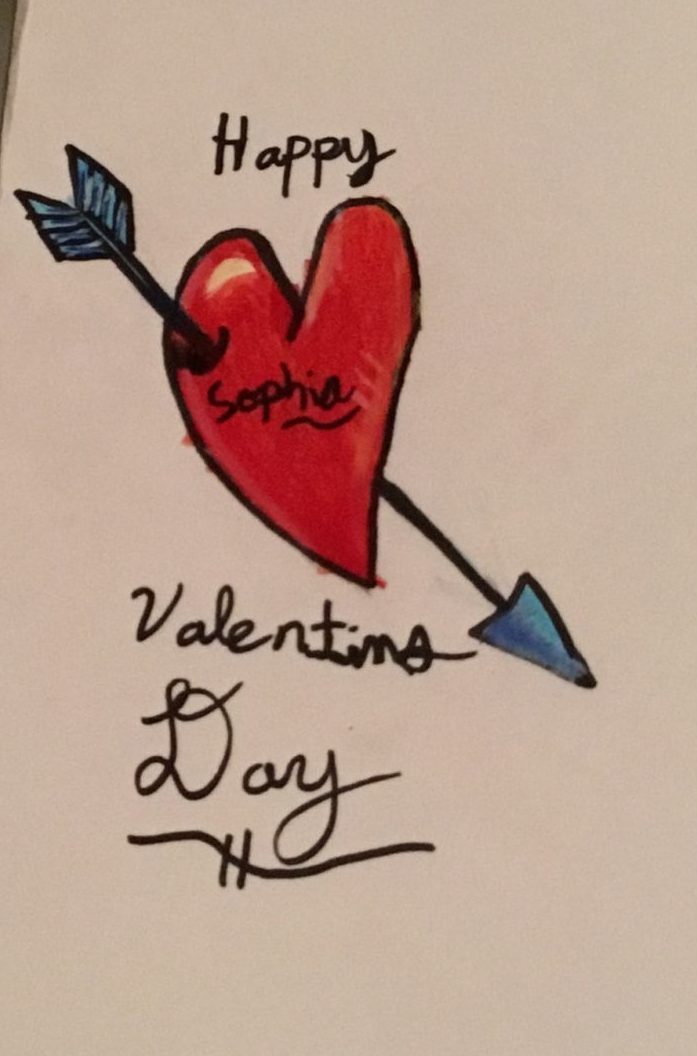 Happy
Sophia
Valentins
Day